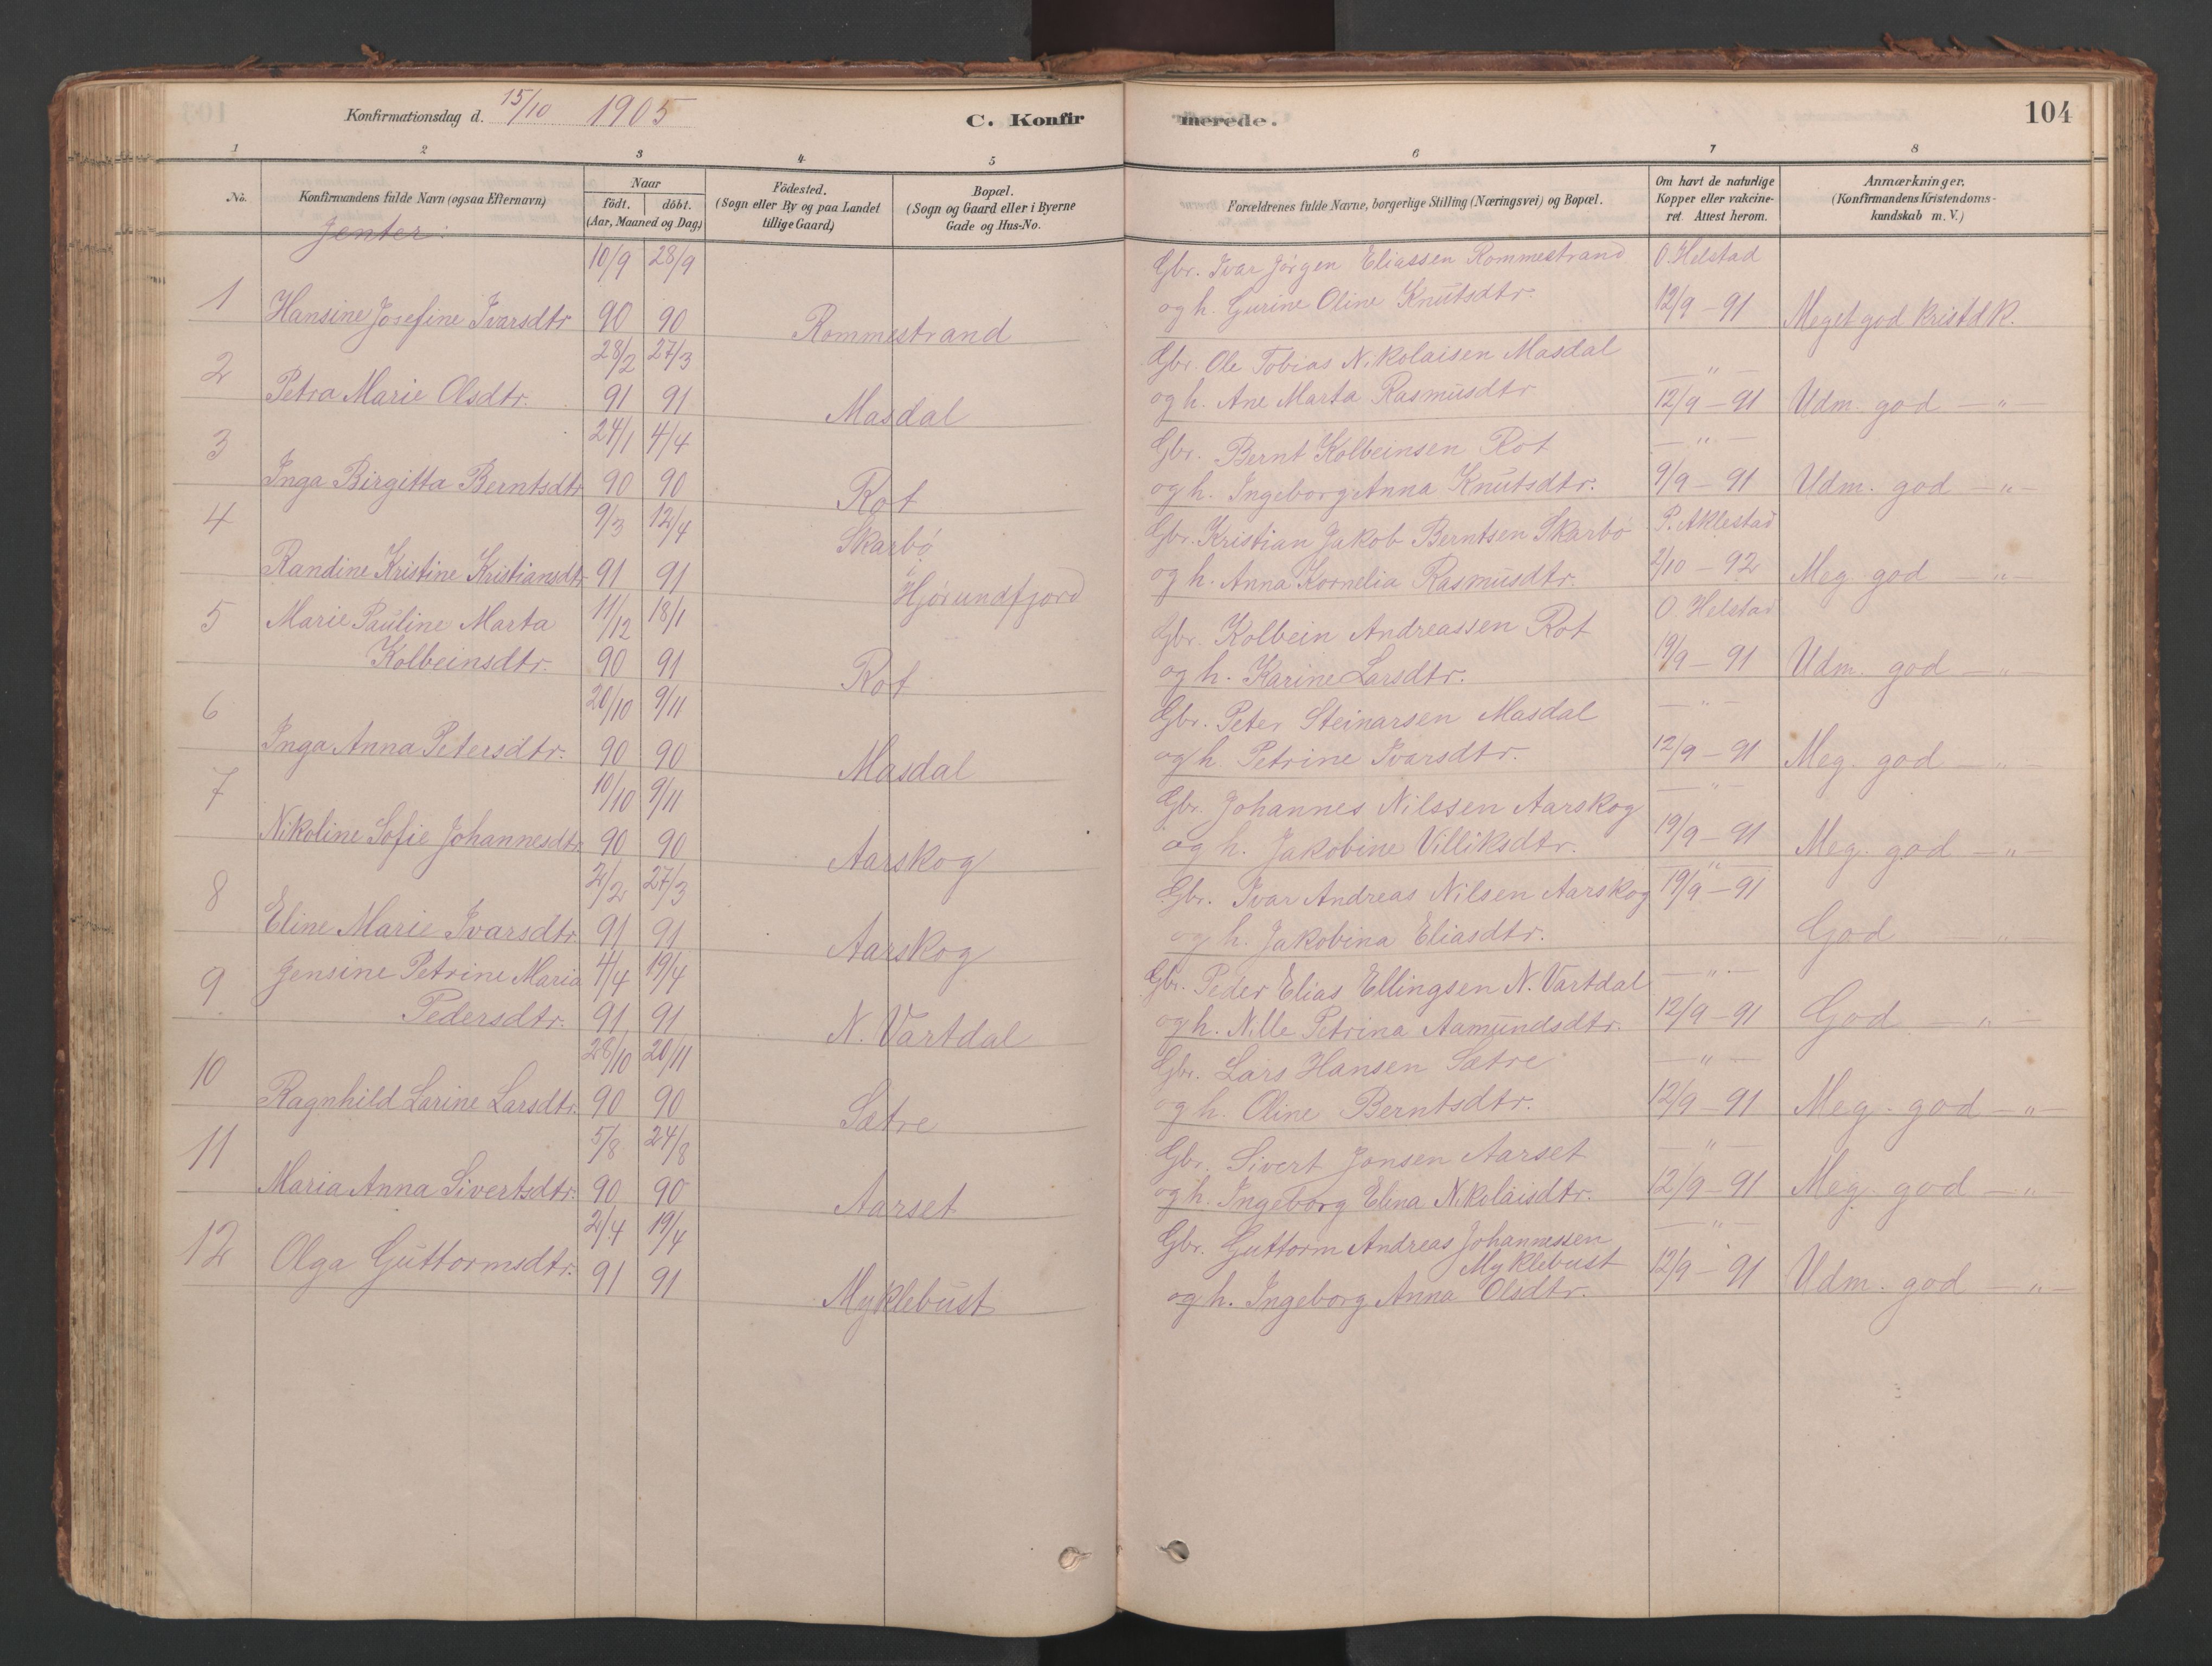 Konfirmationsdag d. 15/10 1905
C. Konfirmerede.
104
1 2 3 4 5 6 7 8
No.
Konfirmandens fulde Navn (ogsaa Efternavn)
Naar
födt. döbt.
(Aar, Maaned og Dag)
Födested.
(Sogn eller By og paa Landet
tillige Gaard)
Bopæl.
(Sogn og Gaard eller i Byerne
Gade og Hus-No.
Forældrenes fulde Navne, borgerlige Stilling (Næringsvei) og Bopæl.
Om havt de naturlige
Kopper eller vakcine-
ret. Attest herom.
Anmærkninger.
(Konfirmandens Kristendoms-
kundskab m. V.)
Jenter:
10/9 28/9 Gbr. Ivar Jörgen Eliassen Rommestrand O. Helstad
1 Hansine Josefine Ivarsdtr 90 90 Rommestrand og h. Gurine Oline Knutsdtr. 12/9 - 91 Meget god kristdk.
28/2 27/3 Gbr. Ole Tobias Nikolaisen Masdal — " —
2 Petra Marie Olsdtr. 91 91 Masdal og h. Ane Marta Rasmusdtr 12/9 - 91 Udm. god — "
24/1 4/4 Gbr. Bernt Kolbeinsen Rot — " —
3 Inga Birgitta Berntsdtr 90 90 Rot og h. Ingeborg Anna Knutsdtr. 9/9 - 91 Udm. god — " —
9/3 12/4 Skarbö Gbr. Kristian Jakob Berntsen Skarbö P. Aklestad
4 Randine Kristine Kristiansdtr 91 91 Hjörundfjord og h. Anna Kornelia Rasmusdtr. 2/10 - 92 Meg. god — " —
5 Marie Pauline Marta 11/12 18/1 Gbr. Kolbein Andreassen Rot O. Helstad
Kolbeinsdtr. 90 91 Rot og h. Karine Larsdtr. 19/9 - 91 Udm. god — "
20/10 9/11 Gbr. Peter Steinarsen Masdal — " —
6 Inga Anna Petersdtr. 90 90 Masdal og h. Petrine Ivarsdtr. 12/9 - 91 Meg. god — " —
10/10 9/11 Gbr. Johannes Nilssen Aarskog — " —
7 Nikoline Sofie Johannesdtr 90 90 Aarskog og h. Jakobine Villiksdtr. 19/9 - 91 Meg. god — " —
2/2 27/3 Gbr. Ivar Andreas Nilsen Aarskog — " — 19/9 - 91
8 Eline Marie Ivarsdtr 91 91 Aarskog og h. Jakobina Eliasdtr. God "
9 Jensine Petrine Maria 4/4 19/4 Gbr. Peder Elias Ellingsen N. Vartdal — " —
Pedersdtr. 91 91 N. Vartdal og h. Nille Petrina Aamundsdtr. 12/9 - 91 God — " —
28/10 20/11 Gbr. Lars Hansen Sætre — " —
10 Ragnhild Larine Larsdtr. 90 90 Sætre og h. Oline Berntsdtr. 12/9 - 91 Meg. god — " —
5/8 24/8 Gbr. Sivert Jonsen Aarset — " —
11 Maria Anna Sivertsdtr. 90 90 Aarset og h. Ingeborg Elina Nikolaisdtr. 12/9 - 91 Meg. god — " —
2/4 19/4 Gbr. Guttorm Andreas Johannessen — " —
Myklebust
12 Olga Guttormsdtr. 91 91 Myklebust og h. Ingeborg Anna Olsdtr. 12/9 - 91 Udm. god — " —